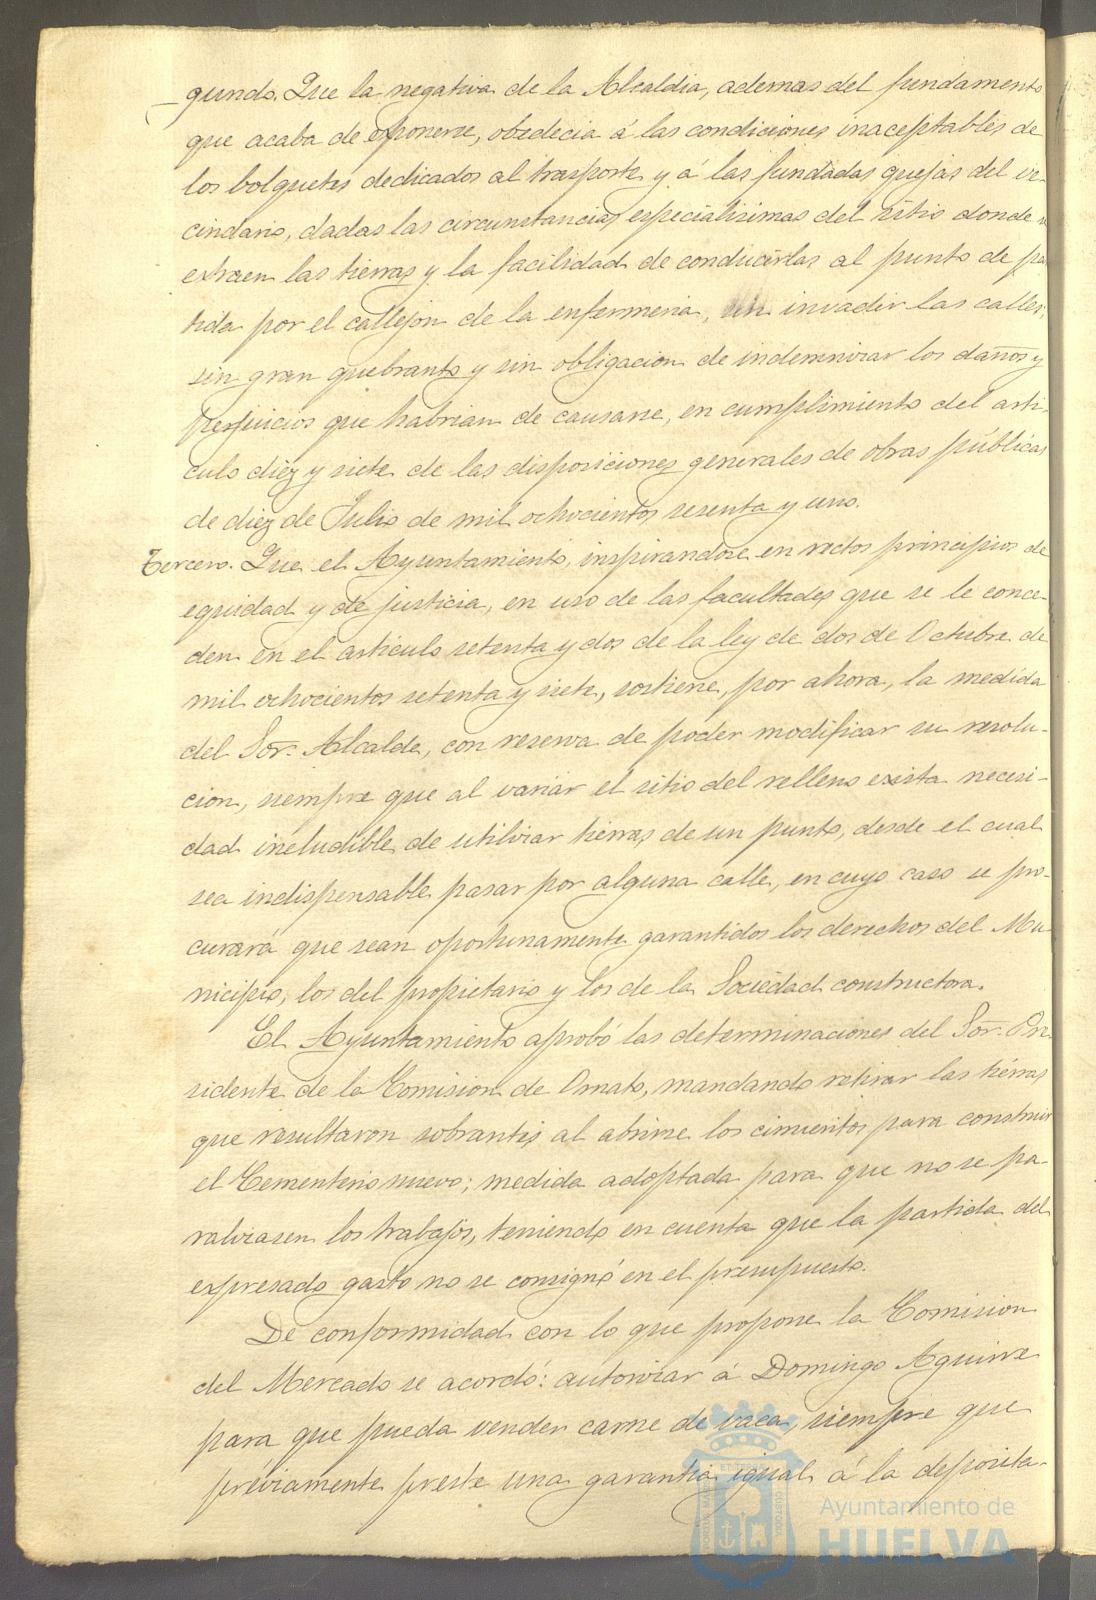 gundo. Que la negativa de la Alcaldia, ademas del fundamento
que acaba de exponerse, obedecia á las condiciones inaceptables de
los bolquetes dedicados al trasporte y á las fundadas quejas del ve-
cindario, dadas las circunstancias especialisimas del sitio donde se
extraen las tierras y la facilidad de conducirlas al punto de par
tida por el callejon de la enfermeria, sin invadir las calles,
sin gran quebranto y sin obligacion de indemnizar los daños y
perjuicios que habrian de causarse, en cumplimiento del arti-
culo diez y siete de las disposiciones generales de obras públicas
de diez de Julio de mil ochocientos sesenta y uno.
Tercero. Que el Ayuntamiento, inspirandose en rectos principios de
equidad y de justicia, en uso de las facultades que se le conce-
den en el articulo setenta y dos de la ley de dos de Octubre de
mil ochocientos setenta y siete, sostiene, por ahora, la medida
del Sor. Alcalde, con reserva de poder modificar su resolu-
cion, siempre que al variar el sitio del relleno exista necesi-
dad ineludible de utilizar tierras de un punto, desde el cual
sea indispensable pasar por alguna calle, en cuyo caso se pro-
curará que sean oportunamente garantidos los derechos del Mu-
nicipio, los del propietario y los de la Sociedad constructora.
El Ayuntamiento aprobó las determinaciones del Sor. Pre
sidente de la Comision de Ornato, mandando retirar las tierras
que resultaron sobrantes al abrirse los cimientos para construir
el Cementerio nuevo; medida adoptada para que no se pa-
ralizasen los trabajos, teniendo en cuenta que la partida del
expresado gasto no se consignó en el presupuesto.
De conformidad con lo que propone la Comision
del Mercado se acordó: autorizar á Domingo Aguirre
para que pueda vender carne de vaca, siempre que
préviamente preste una garantia igual á la deposita-
Ayuntamiento de
HUELVA